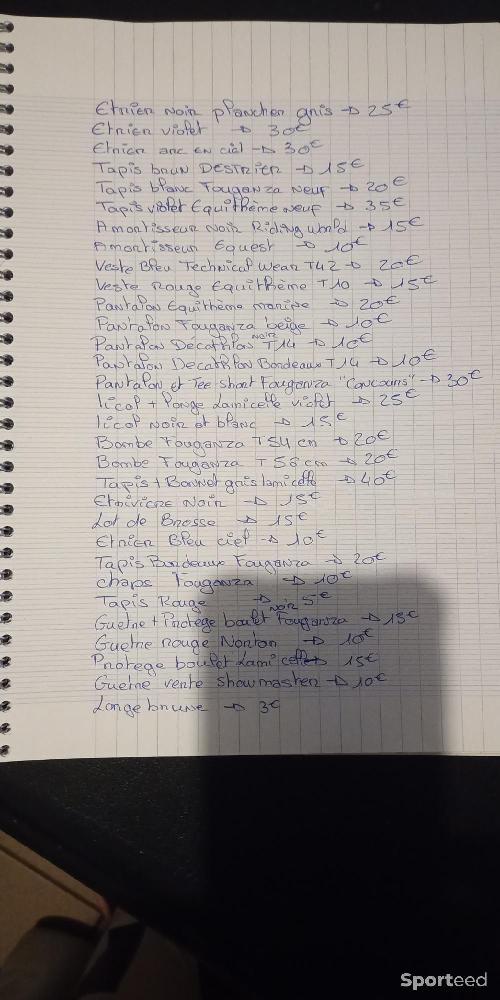 Etrier Noir plancher gris → 25€
Etrier violet → 30€
Etrier arc en ciel → 30€
Tapis brun DESTRIER → 15€
Tapis blanc Fouganza Neuf → 20€
Tapis violet Equithème neuf → 35€
Amortisseur Noir Riding World → 15€
Amortisseur Equest → 10€
Veste Bleu Technical Wear T42 → 20€
Veste Rouge Equithème T10 → 15€
Pantalon Equithème marine → 20€
Pantalon Fouganza beige → 10€
Pantalon Decathlon noir T14 → 10€
Pantalon Decathlon Bordeaux T14 → 10€
Pantalon et Tee short Fouganza "Concours" → 30€
licol + Longe Lamicelle violet → 25€
licol Noir et blanc → 15€
Bombe Fouganza T54 cm → 20€
Bombe Fouganza T 58 cm → 20€
Tapis + Bonnet gris lamicelle → 40€
Etriviere Noir → 15€
Lot de Brosse → 15€
Etrier Bleu ciel → 10€
Tapis Bordeaux Fouganza → 20€
chaps Fouganza → 10€
Tapis Rouge → 5€
Guetre + Protege boulet noir Fouganza → 15€
Guetre rouge Norton → 10€
Protege boulet Lamicelle → 15€
Guetre verte showmaster → 10€
Longe brune → 3€
Sporteed